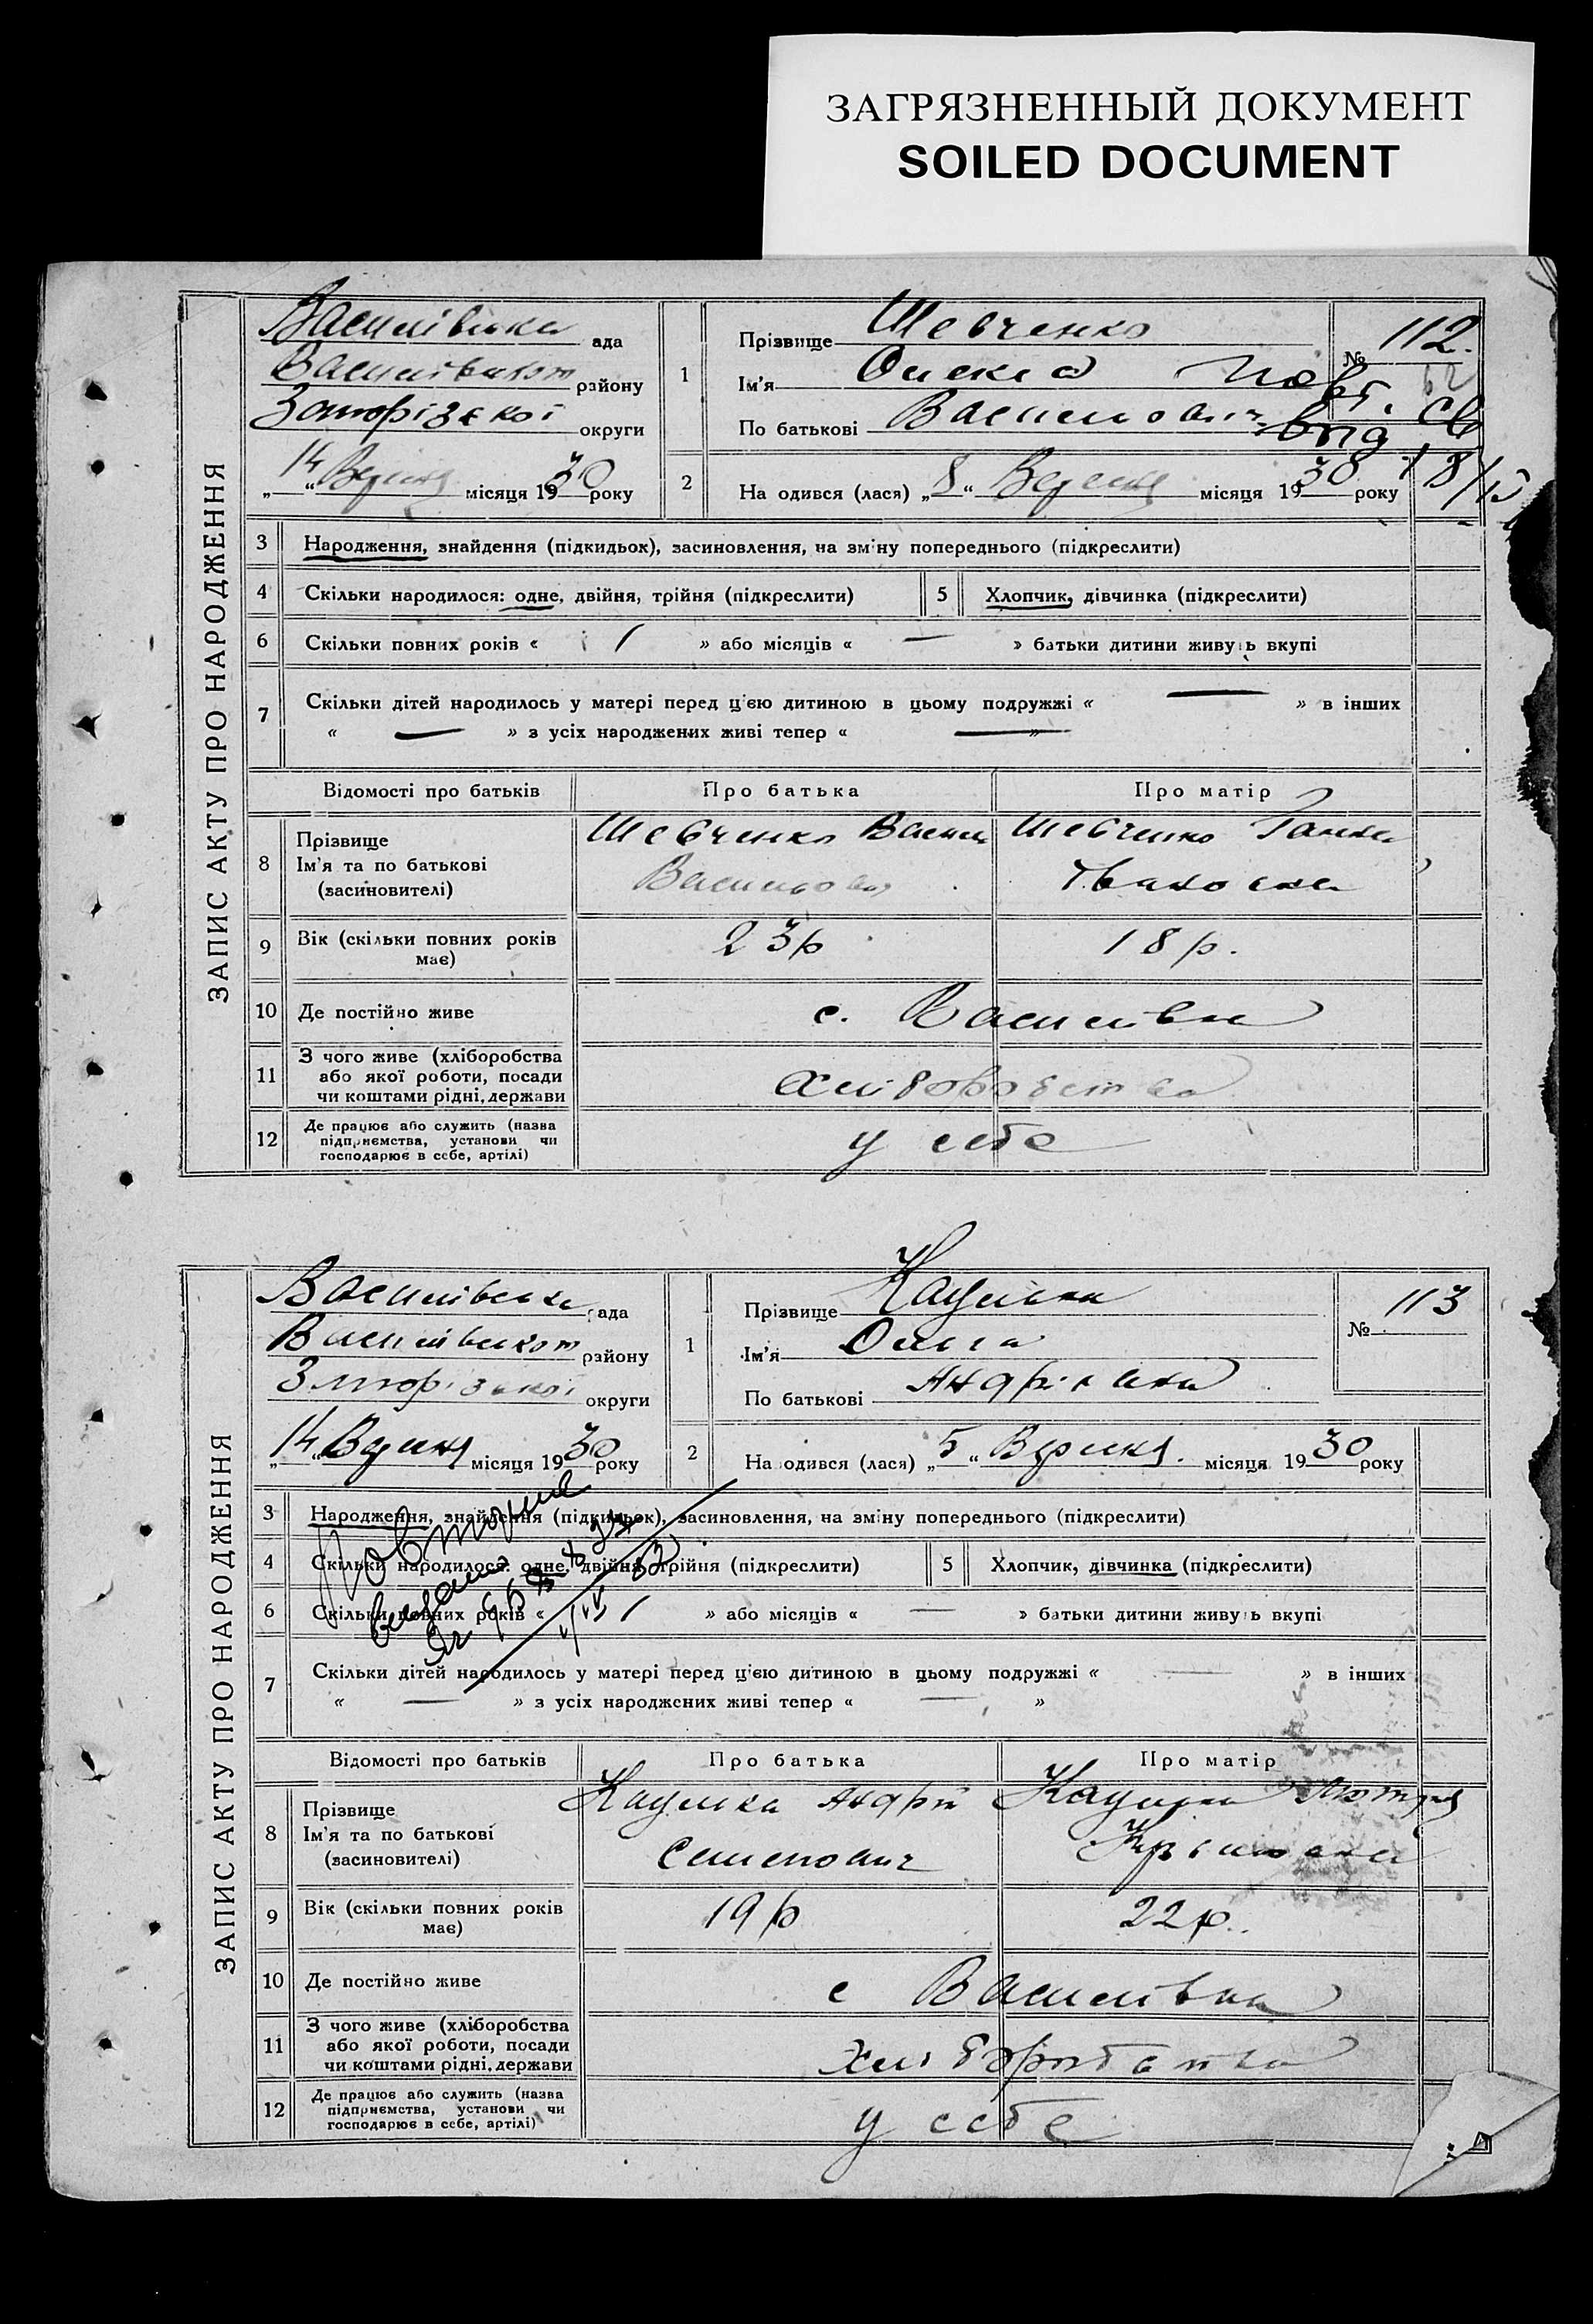 ЗАГРЯЗНЕННЫЙ ДОКУМЕНТ
SOILED DOCUMENT
ЗАПИС АКТУ ПРО НАРОДЖЕННЯ
Василівська ада
району
Запорізької округи
„14“ Вересня місяця 1930 року
1
Прізвище Шевченко
Ім'я Олекса
По батькові Васильович
№ 112.
2
На одився (лася) „8“ Вересня місяця 1930 року
3 Народження, знайдення (підкидьок), засиновлення, на зміну попереднього (підкреслити)
4 Скільки народилося: одне, двійня, трійня (підкреслити)
5 Хлопчик, дівчинка (підкреслити)
6 Скільки повних років « 1 » або місяців « — » батьки дитини живуть вкупі
7 Скільки дітей народилось у матері перед ц'єю дитиною в цьому подружжі « — » в інших
« — » з усіх народжених живі тепер « — »
Відомості про батьків Про батька Про матір
8 Прізвище
Ім'я та по батькові
(засиновителі)
Шевченко Васил
Васильович
Шевченко Ганна
Івановна
9 Вік (скільки повних років має) 23р 18р.
10 Де постійно живе с. Василівка
11 З чого живе (хліборобства
або якої роботи, посади
чи коштами рідні, держави
хліборобства
12 Де працює або служить (назва
підприємства, установи чи
господарює в себе, артілі)
у себе
ЗАПИС АКТУ ПРО НАРОДЖЕННЯ
Василівська ада
району
Запорізької округи
„14“ Вересня місяця 1930 року
1
Прізвище
Ім'я Ольга
По батькові Андріївна
№ 113
2
На одився (лася) „5“ Вересня місяця 1930 року
3 Народження, знайдення (підкидьок), засиновлення, на зміну попереднього (підкреслити)
4 Скільки народилося: одне, двійня, трійня (підкреслити)
5 Хлопчик, дівчинка (підкреслити)
6 Скільки повних років « 1 » або місяців « — » батьки дитини живуть вкупі
7 Скільки дітей народилось у матері перед ц'єю дитиною в цьому подружжі « — » в інших
« — » з усіх народжених живі тепер « — »
Відомості про батьків Про батька Про матір
8 Прізвище
Ім'я та по батькові
(засиновителі)
Андрій
Семенович
9 Вік (скільки повних років має) 19р 22р.
10 Де постійно живе с Василівка
11 З чого живе (хліборобства
або якої роботи, посади
чи коштами рідні, держави
хліборобства
12 Де працює або служить (назва
підприємства, установи чи
господарює в себе, артілі)
у себе